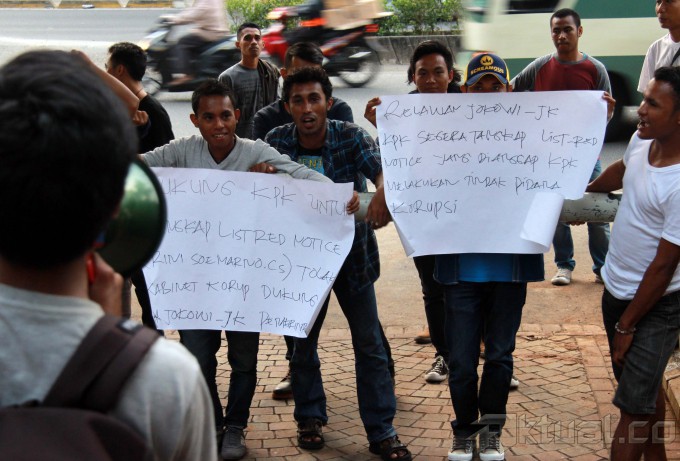 UKUNG KPK UNTUK
ANGKAP LIST RED NOTICE
RINI SOEMARNO.CS) TOLAK
KABINET KORUP DUKUNG
JOKOWI-JK
RELAWAN JOKOWI-JK
KPK SEGERA TANGKAP LIST.RED
NOTICE YANG DIANGGAP KPK
MELAKUKAN TINDAK PIDANA
KORUPSI
Aktual.co